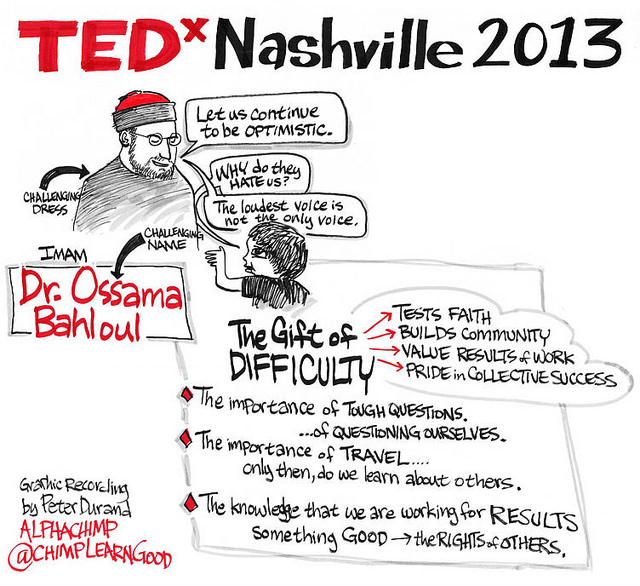 TEDx Nashville 2013
Let us continue
to be OPTIMISTIC.
WHY do they
HATE US?
The loudest voice is
not the only voice.
CHALLENGING
DRESS
CHALLENGING
NAME
IMAM
Dr. Ossama
Bahloul
The Gift of
DIFFICULTY
TESTS FAITH
BUILDS COMMUNITY
VALUE RESULTS of WORK
PRIDE in COLLECTIVE SUCCESS
The importance of TOUGH QUESTIONS.
...of QUESTIONING OURSELVES.
The importance of TRAVEL....
only then, do we learn about others.
The knowledge that we are working for RESULTS
something GOOD → the RIGHTS of OTHERS.
Graphic Recording
by Peter Durand
ALPHACHIMP
@CHIMPLEARNGOOD